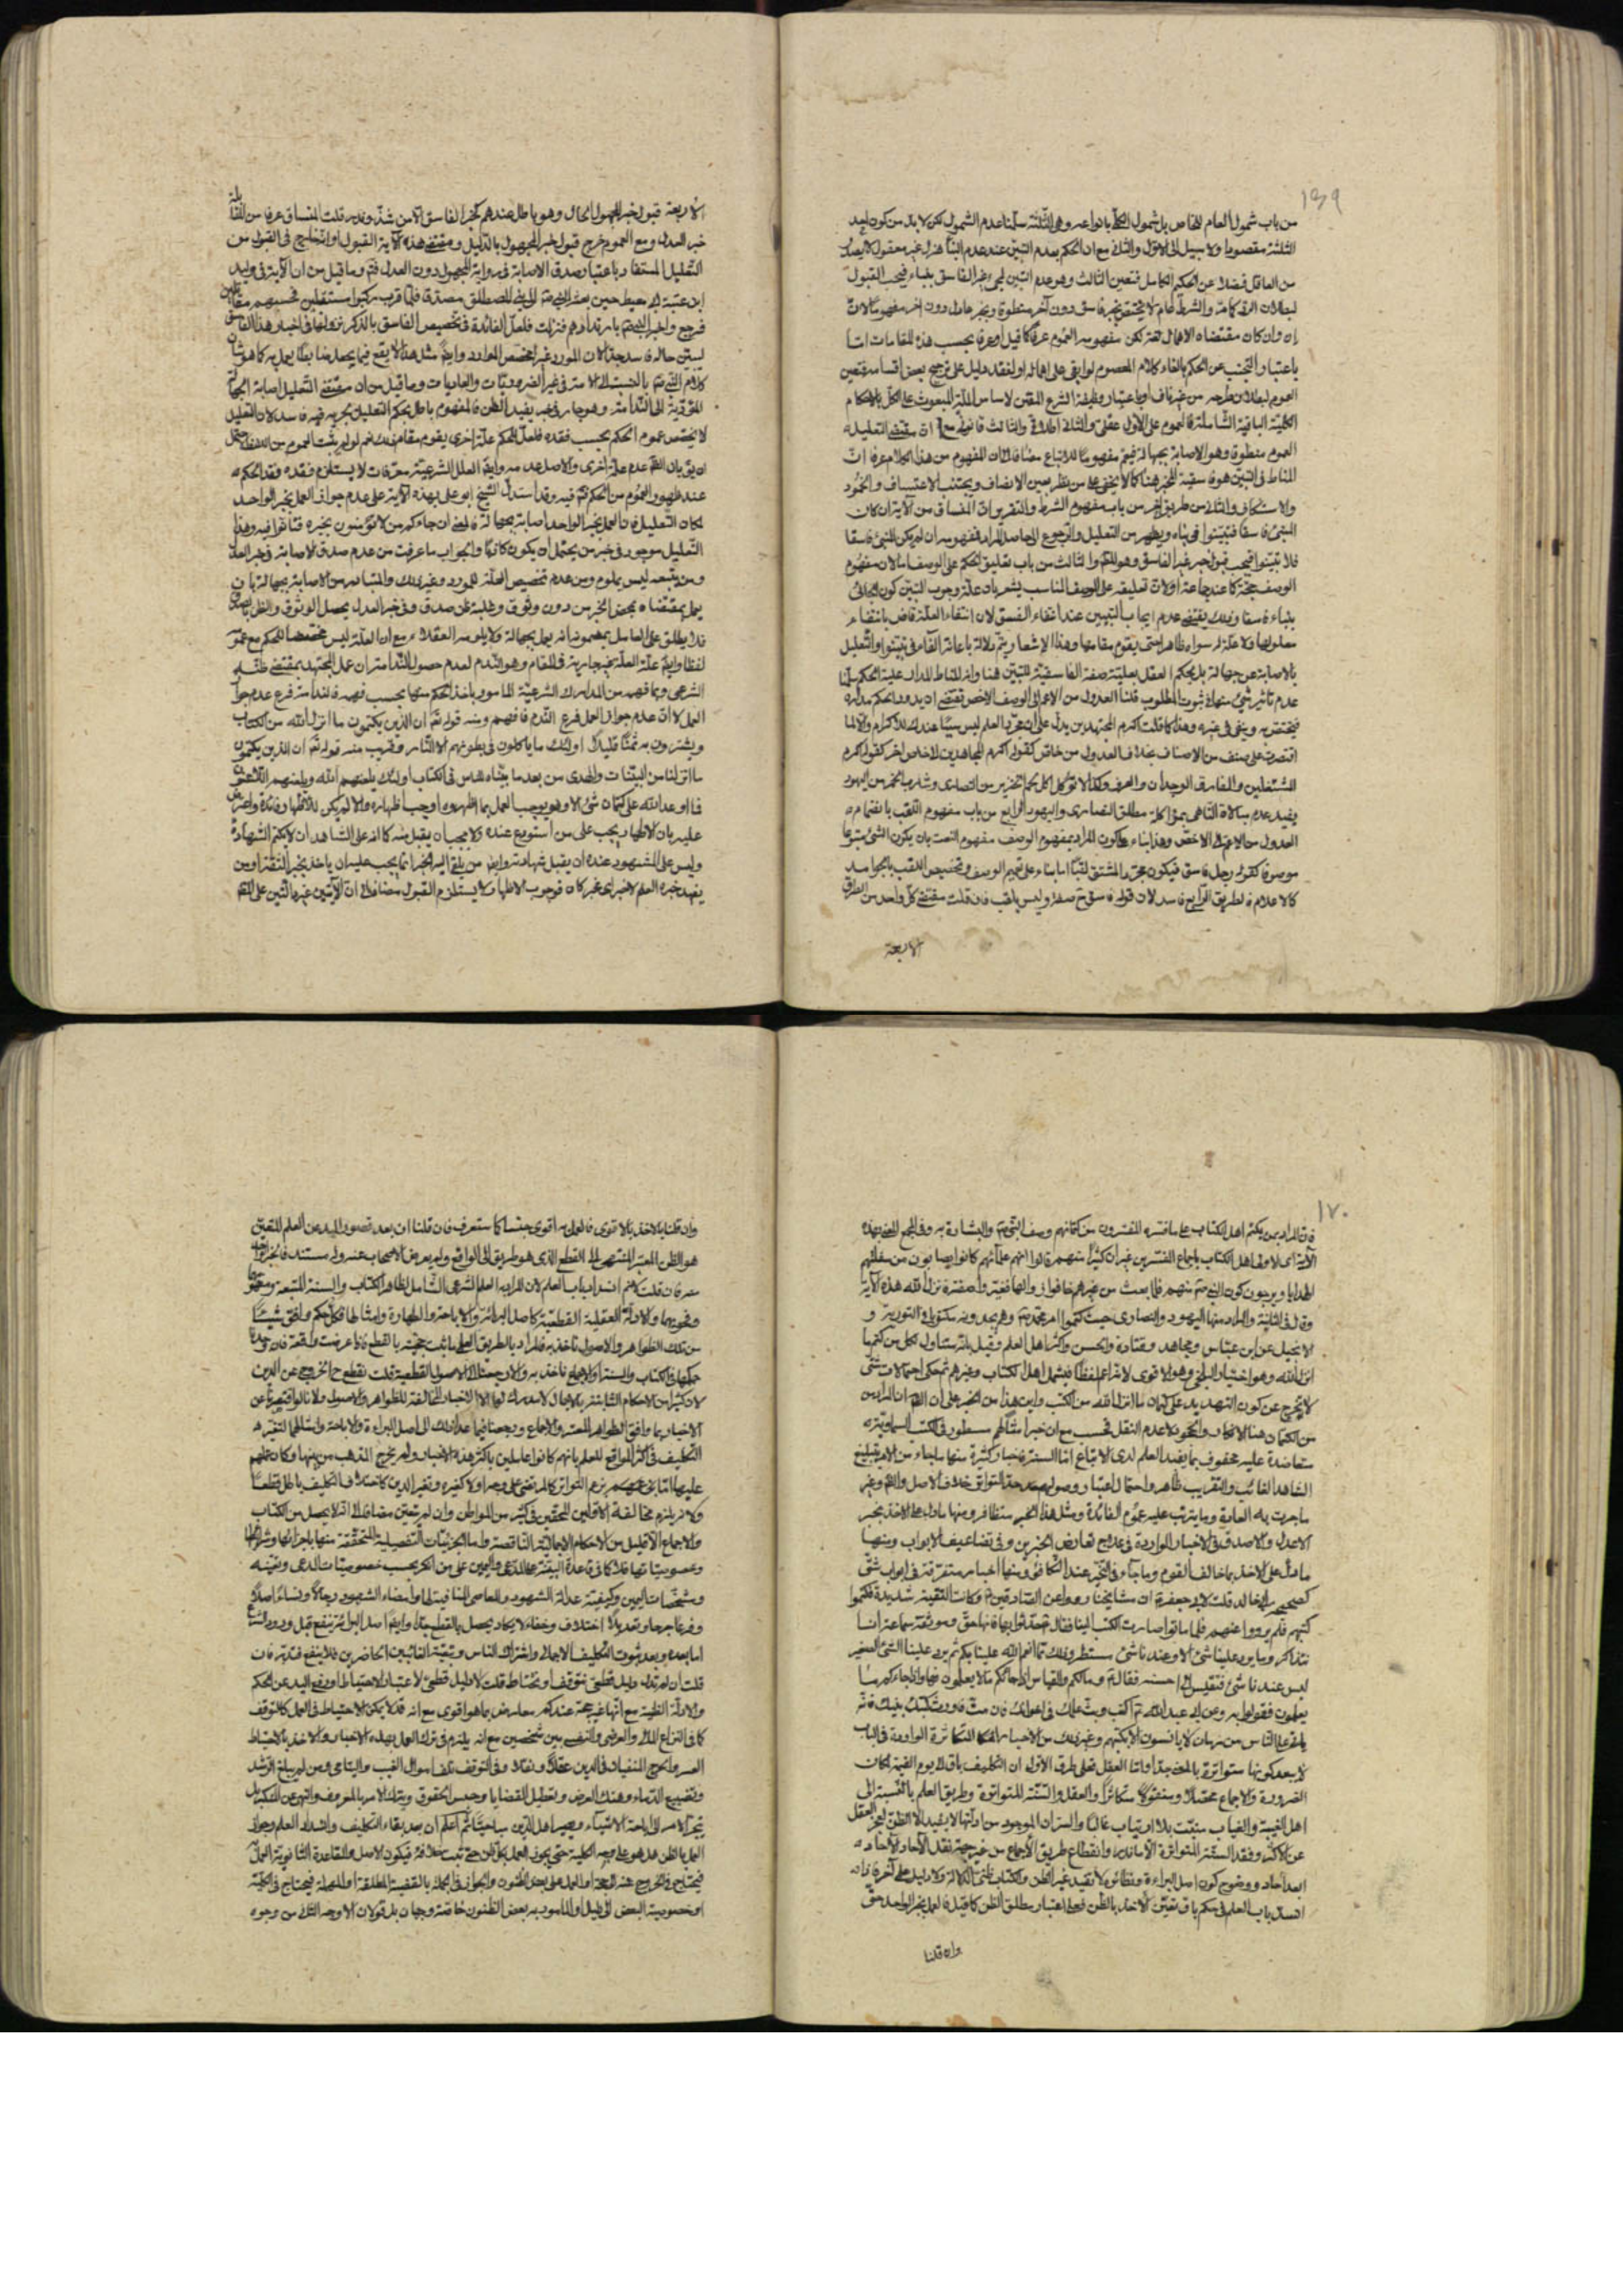 ١٦٩
من باب شمول العام للخاص بل شمول الكلي بانواعه وهي الثلثة سلمنا عدم الشمول لكن لا بد من كون احد
الثلثة مقصودا ولا سبيل الى الاول والثاني مع ان الحكم بعدم التبين عند عدم النبأ هزل غير معقول لا يصدر
من العاقل فضلا عن الحكيم الكامل فتعين الثالث وهو عدم التبين لمجئ غير الفاسق بنباء فيجب القبول
لبطلان الرد كما مر والشرط عام لا يختص بخبر فاسق دون آخر منطوقا وبخبر عادل دون اخر مفهوما لان
إن وان كان مقتضاه الاهمال لغة لكن مفهومه العموم عرفا كما قيل او عرفا بحسب هذه المقامات اما
باعتبار التجنب عن الحكم بالغاء كلام المعصوم لو ابقى على اهماله او لفقد دليل على ترجيح بعض اقسامه فتعين
العموم لبطلان طرحه من غير ناف او باعتبار وظيفة الشرع المقنن لاساس الملة المبعوث على الكل بالاحكام
الكلية الباقية الشاملة فالعموم على الاول عقلي والثاني اطلاقي والثالث قانوني مع ان مقتضى التعليل
العموم منطوقا وهو الاصابة بجهالة فيعم مفهوما للاتباع مضافا الى ان المفهوم من هذا الكلام عرفا ان
المناط في التبين هو فاسقية المخبر هنا كما لا يخفى على من نظر بعين الانصاف ويجتنب الاعتساف والجمود
والاستنكاف والثاني من طريق اخر من باب مفهوم الشرط والتقرير ان المنساق من الآية ان كان
المنبئ فاسقا فتبينوا في نباه ويظهر من التعليل والرجوع الى حاصل المراد فمفهومه ان لم يكن المنبئ فاسقا
فلا تبينوا فيجب قبول خبر غير الفاسق وهو المط والثالث من باب تعليق الحكم على الوصف اما لان مفهوم
الوصف حجة كما عند جماعة او لان تعليقه على الوصف المناسب يشعر بان علة وجوب التبين كون الجائى
بنباء فاسقا وذلك يقتضي عدم ايجاب التبين عند انتفاء الفسق لان انتفاء العلة قاض بانتفاء
معلولها ولا علة له سواه ظاهرا حتى يقوم مقامها وهذا الاشعار يتم دلالة باعانة الفاء في فتبينوا والتعليل
بالاصابة عن جهالة بل يحكم العقل بعلية صفة الفاسقية للتبين هنا وانه المناط المدار علية الحكم سلمنا
عدم تاثير شيء منها في ثبوت المطلوب قلنا العدول من الاعم الى الوصف الاخص يقتضي ان يدور الحكم مداره
فيختص به وينفى في غيره وهذا كما قلت اكرم المجتهدين يدل على ان مجرد العلم ليس سببا عندك للاكرام والا لما
اقتصرت على صنف من الاصناف بخلاف العدول من خاص كقولك اكرم المجاهدين لاخص اخر كقولك اكرم
المشتغلين والفارق الوجدان والعرف وكذا لا تؤكل اكل لحم الخنزير من النصارى وشارب الخمر من اليهود
يفيد عدم مبالاة الناهي بمؤاكلة مطلق النصارى واليهود الرابع من باب مفهوم اللقب بانضمام
العدول من الاعم الى الاخص وهذا بناء على كون المراد بمفهوم الوصف مفهوم النعت بان يكون الشئ متبوعا
موصوفا كقولك رجل فاسق فيكون مجرد المشتق لقبا اما بناء على تعميم الوصف وتخصيص اللقب بالجوامد
كالاعلام فالطريق الرابع فاسد لان قوله فاسق ح صفة وليس بلقب فان قلت مقتضى كل واحد من الطرق
الاربعة
الاربعة قبول خبر المجهول الحال وهو باطل عندهم كخبر الفاسق الا من شذ وندر قلت المنساق عرفا من المقابلة
خبر العدل ومع العموم خرج قبول خبر المجهول بالدليل ومقتضى هذه الآية القبول او التخارج في القول من
التعليل المستفاد باعتبار صدق الاصابة في رواية المجهول دون العدل فتم وما قيل من ان الآية في وليد
ابن عتبة ابي معيط حين بعثه النبي ص الى بني المصطلق مصدقا فلما قرب ركبوا مستقبلين فحسبهم مقاتلين
فرجع واخبر النبي ص بارتدادهم فنزلت فلعل الفائدة في تخصيص الفاسق بالذكر نزولها في اخبار هذا الفاسق
ليبين حاله فاسد جدا لان المورد غير مخصص للوارد وايضا مثل هذا لا يقع فيما يجعل ضابطا يعمل به كما هو شان
كلام النبي ص بالنسبة الى الامة في غير الضروريات والعاديات وما قيل من ان مقتضى التعليل اصابة الجهالة
المؤدية الى الندامة وهو جار في خبر يفيد الظن فالمفهوم باطل بحكم التعليل بجريه فيه فاسد لان التعليل
لا يخصص عموم الحكم بحسب فقده فلعل للحكم علة اخرى يقوم مقام ذلك نعم لو لم يثبت العموم من اللفظ احتمل
ان يق بان الظ عدم علة اخرى والاصل عدمه وايضا العلل الشرعية معرفات لا يستلزم فقده فقد الحكم
عند ظهور العموم من الحكم فتم فيه وقد استدل الشيخ ابو علي بهذه الآية على عدم جواز العمل بخبر الواحد
لمكان التعليل فان العمل بخبر الواحد اصابة بجهالة فالمعنى ان جاءكم من لا تؤمنون بخبره فتانوا فيه وهذا
التعليل موجود في خبر من يحتمل ان يكون كاذبا والجواب ما عرفت من عدم صدق الاصابة في خبر العدل
ومن تبعه ليس بملوم ومن عدم تخصيص العلة للمورد وغير ذلك والمتبادر من الاصابة بجهالة بان
يعمل بمقتضاه بمحض الخبر من دون وثوق وغلبة ظن صدق وفي خبر العدل يحصل الوثوق والظن بصدق
فلا يطلق على العامل بمضمونه انه يعمل بجهالة ولا يلومه العقلاء مع ان العلة ليس مخصصا للحكم مع عمومه
لفظا وايضا علة العلة غير جارية في المقام وهو الندم لعدم حصول الندامة ان عمل المجتهد بمقتضى ظنه
الشرعي وبما فهم من المدارك الشرعية المامور باخذ الحكم منها بحسب فهمه فالندامة فرع عدم جواز
العمل لا ان عدم جواز العمل فرع الندم فافهم ومنه قوله تع ان الذين يكتمون ما انزل الله من الكتاب
ويشترون به ثمنا قليلا اولئك ما ياكلون في بطونهم الا النار وقريب منه قوله تع ان الذين يكتمون
ما انزلنا من البينات والهدى من بعد ما بيناه للناس في الكتاب اولئك يلعنهم الله ويلعنهم اللاعنون
فاا وعد الله على كتمان شئ الا وهو يوجب العمل بما اظهروه اوجب اظهاره والا لم يكن للاظهار فائدة واعترض
عليه بان الاظهار يجب على من استودع عنده ولا يجب ان يقبل منه كما انه على الشاهد ان لا يكتم الشهادة
وليس على المشهود عنده ان يقبل شهادته وايضا من يلقى اليه الخبر انما يجب عليه ان ياخذ بخبر الثقة او من
يفيد خبره العلم لا خبر اى مخبر كان فوجوب الاظهار لا يستلزم القبول مضافا الى ان الآيتين غير دالتين على المط
١٧٠
فان المراد بمن يكتم اهل الكتاب على ما فسره المفسرون من كتمانهم وصف النبي ص والبشارة به وفي المجمع المعنى بهذه
الآية اى الاولى اهل الكتاب باجماع المفسرين غير ان كثيرا منهم قالوا انهم علمائهم كانوا يصيبون من سفلتهم
الهدايا ويرجون كون النبي ص منهم فلما بعث من غيرهم خافوا زوال ماكلهم فغيروا صفته فنزل الله هذه الآية
وقال في الثانية والمراد منها اليهود والنصارى حيث كتموا امر محمد ص وهم يجدونه مكتوبا في التورية و
الانجيل عن ابن عباس ومجاهد وقتادة والحسن واكثر اهل العلم وقيل بل انه متناول لكل من كتم ما
انزل الله وهو اختيار البلخي وهو الاقوى لانه اعم لفظا فيشمل اهل الكتاب وغيرهم ثم حكى احتمالات شتى
لا يخرج عن كون التهديد على كتمان ما انزل الله من الكتب واين هذا من الخبر على ان الظ ان المراد من
من الكتمان هنا الانكار والجحود لا عدم النقل فحسب مع ان خبر امثالهم مسطور في الكتب السماوية
متعاضدة عليه محفوف بما يفيد العلم لدى الاتباع اما السنة فاخبار كثيرة منها ما جاء من الامر بتبليغ
الشاهد الغائب والتقريب ظاهر واحتمال اعتبار وصوله بحد حد التواتر خلاف الاصل والظ وغير
ما جرت به العادة وما يترتب عليه عموم الفائدة ومثل هذا الخبر متظافر ومنها ما دل على الاخذ بخبر
الاعدل والاصدق في الاخبار الواردة في علاج تعارض الخبرين وفي تضاعيف الابواب ومنها
ما دل على الاخذ بما خالف القوم وما جاء في التخيير عند التكافؤ ومنها اخبار متفرقة في ابواب شتى
كصحيح ابي خالد قلت لابي جعفر ع ان مشايخنا رووا عن الصادقين ع وكانت التقية شديدة فكتموا
كتبهم فلم يرووا عنهم فلما ماتوا صارت الكتب الينا فقال ع حدثوا بها فانها حق وموثقة سماعة انا
نتذاكر وما يرد علينا شئ الا وعندنا شئ مستطر وذلك مما انعم الله علينا بكم ثم يرد علينا الشئ الصغير
ليس عندنا شئ فنقيس الى احسنه فقال ع وما لكم والقياس اذا جاءكم ما لا يعلمون فها واذا جاءكم ما
يعلمون فقولوا به وعن ابي عبد الله ع اكتب وبث علمك في اخوانك فان مت فاورث كتبك بنيك فانه
ياتي على الناس زمان لا يانسون الا بكتبهم وغير ذلك من الاخبار المتكاثرة الواردة في الباب
لا يبعد كونها متواترة بالمعنى جدا واما العقل فعلى طرق الاول ان التكليف باق الى يوم القيمة لمكان
الضرورة والاجماع محصلا ومنقولا متكاثرا والعقل والسنة المتواترة وطريق العلم بالنسبة الى
اهل الغيبة والغياب منبت بلا ارتياب غالبا والسر ان الموجود من ادلتها لا يفيد الا الظن لعجز العقل
عن الاكثر وفقد السنة المتواترة الا نادرا وانقطاع طريق الاجماع من غير جهة نقل الآحاد لآحاده
ابدا حاد ووضوح كون اصل البراءة ونظائره لا تفيد غير الظن والكتاب ظني الدلالة ولا دليل على آخر فاذا
انسد باب العلم في حكم باق تعين الاخذ بالظن فعلى اعتبار مطلق الظن كما قيل فالعمل بخبر الواحد حق
وان قلنا
وان قلنا بالاخذ بالاقوى فالعمل به اقوى جنسا كما ستعرف فان قلنا ان بعد قصور اليد عن العلم المتعين
هو الظن المعتبر المنتهى الى القطع الذي هو طريق الى الواقع ولم يعرض الاصحاب عنه وله مستند فالخبر اقواه
منه فان قلت لا نم انسداد باب العلم لان المراد به العلم الشرعي الشامل لظاهر الكتاب والسنة المتبعة ومنطوقها
وفحويهما والادلة العقلية القطعية كاصل البرائة والاباحة والطهارة وامثالها فكل حكم وافق شيئا
من تلك الظواهر والاصول ناخذ به فالمراد بالطريق العلمي ما ثبت حجيته بالقطع فاذا عرضت واقعة فان وجدنا
حكمها في الكتاب والسنة او الاجماع ناخذ به والا رجعنا الى الاصول القطعية قلت نقطع ح بالخروج عن الدين
لان كثيرا من الاحكام الثابتة بالاجمال لا مدرك لها الا الاخبار المخالفة للظواهر والاصول ولانا لو اقتصرنا عن
الاخبار بما وافق الظواهر المعتبرة والاجماع ورجعنا فيما عدا ذلك الى اصل البراءة والاباحة وامثالهما لتغير
التكليف في اكثر المواقع للعلم بانهم كانوا عاملين باكثر هذه الاخبار ولم يخرج المذهب من بينها وكان عملهم
عليها اما بزعمهم بزعم التواتر كالمرتضى على وجه او لا كغيره وتغير الدين كاحداث التكليف باطل قطعا
ولانه يلزم مخالفة الاولين المحقين في كثير من المواطن وان لم يتعين مضافا الى انه لا يحصل من الكتاب
والاجماع الا قليل من الاحكام الاجمالية الناقصة واما الجزئيات التفصيلية المتحققة منها باجزائها وشرائطها
وخصوصياتها فلا كما في قاعدة البينة على المدعي واليمين على من انكر بحسب خصوصيات المدعى وتعينه
ومشخصات اليمين وكيفيته عدالة الشهود والمعاصي المنافية لها وامضاء الشهود رجالا ونساء اصلا
وفرعا جرحا وتعديلا اختلاف وخفاء لا يكاد يحصل بالقطع جدا وايضا اصل البرائة ينفع قبل ورود الشرع
اما بعده وبعد ثبوت التكليف الاجمالي واشتراك الناس وتبعية الغائبين الحاضرين فلا ينفع فتدبر فان
قلت ان لم تدل دليل قطعي نتوقف او نحتاط قلت لا دليل قطعي لاعتبار الاحتياط او رفع اليد عن الحكم
والادلة الظنية مع انها غير حجة عندكم معارض بما هو اقوى مع انه قد لا يمكن الاحتياط في العمل كالتوقف
كما في النزاع المالي والعرضي والنفسي بين شخصين مع انه يلزم في ترك العمل بهذه الاخبار والاخذ بالاحتياط
العسر والحرج المنفيان في الدين عقلا ونقلا وفي التوقف تلف اموال الغيب واليتامى ومن لم يبلغ الرشد
وتضييع الدماء وهتك العرض وتعطيل القضايا وحبس الحقوق وبترك الامر بالمعروف والنهي عن المنكر بل
ينجر الامر الى اباحة الاشياء ويصير اهل الدين مباحيا ثم اعلم ان بعد بقاء التكليف وانسداد العلم وجواز
العمل بالظن هل هو على وجه الكلية حتى يجوز العمل بكل ظن حتى يثبت خلافه فيكون الاصل والقاعدة الثانوية العمل
فيحتاج في الخروج عنه الى حجة او العمل على بعض الظنون والجواز في الجملة بالقضية المطلقة او المهملة فيحتاج في الكلية
او خصوصية البعض الى دليل والمامور به بعض الظنون خاصة وجهان بل قولان الاوجه الثاني من وجوه